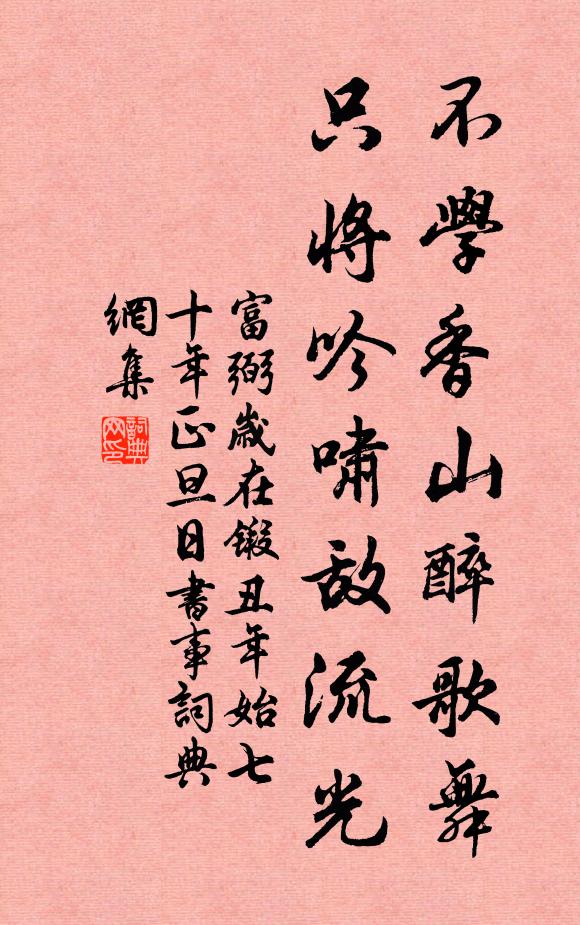 不學香山醉歌舞
只將吟嘯敌流光
富弼歲在鍛丑年始七
十年正旦日書事詞典
網集
詞典
网印